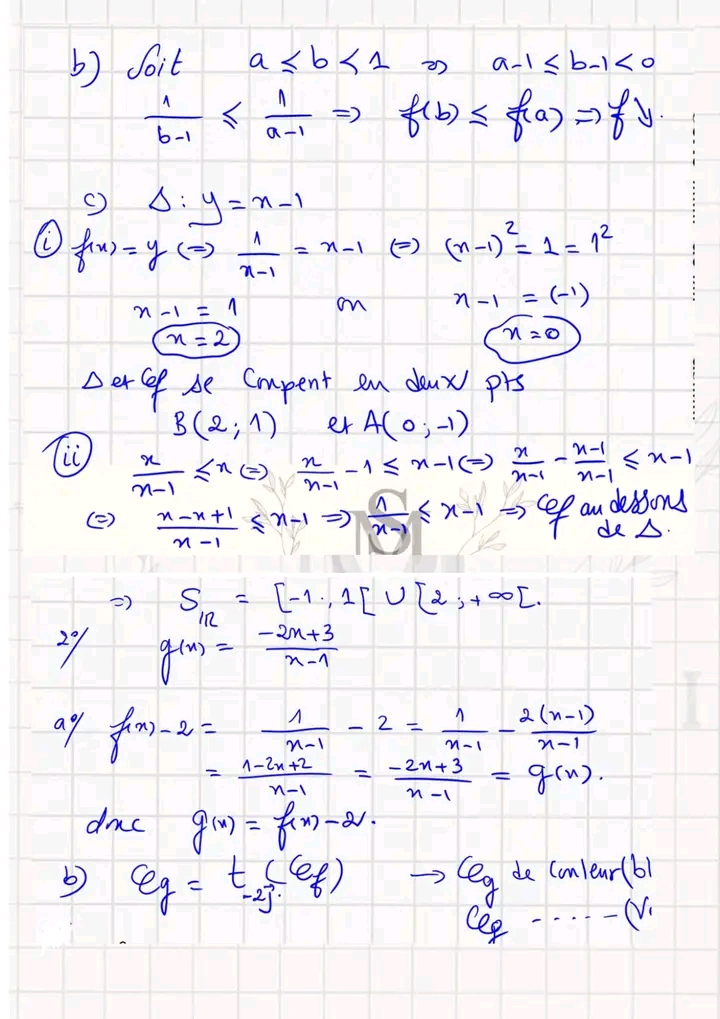 b) Soit a ⩽ b < 1 ⇒ a-1 ⩽ b-1 < 0
1/(b-1) ⩽ 1/(a-1) ⇒ f(b) ⩽ f(a) ⇒ f ↘.
c) Δ : y = x-1
(i) f(x) = y (=) 1/(x-1) = x-1 (=) (x-1)² = 1 = 1²
x-1 = 1 ou x-1 = (-1)
x = 2 x = 0
Δ et Cf se Coupent en deux pts
B(2; 1) et A(0; -1)
(ii) x/(x-1) ⩽ x (=) x/(x-1) - 1 ⩽ x-1 (=) x/(x-1) - (x-1)/(x-1) ⩽ x-1
(=) (x-x+1)/(x-1) ⩽ x-1 ⇒ 1/(x-1) ⩽ x-1 ⇒ Cf au dessous
de Δ.
⇒ S_IR = [-1; 1[ ∪ [2; +∞[.
2°/ g(x) = (-2x+3)/(x-1)
a°/ f(x)-2 = 1/(x-1) - 2 = 1/(x-1) - 2(x-1)/(x-1)
= (1-2x+2)/(x-1) = (-2x+3)/(x-1) = g(x).
donc g(x) = f(x)-2.
b) Cg = t_-2j (Cf) → Cg de Couleur (bl
Cg ----- (V